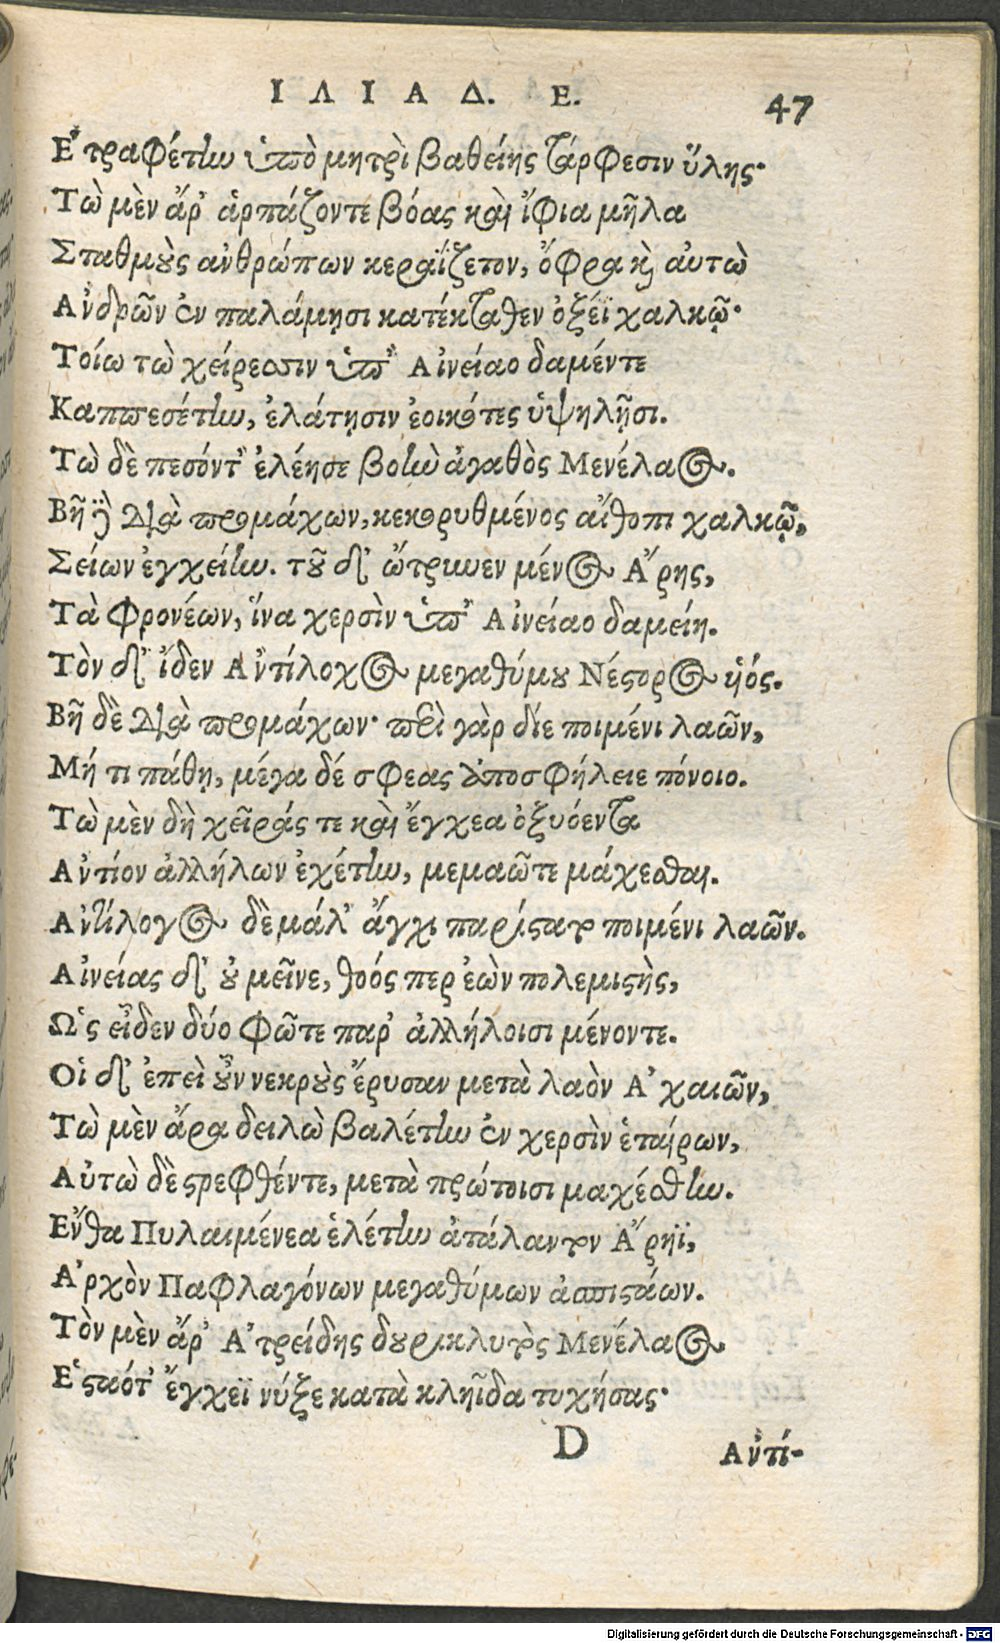 ΙΛΙΑΔ. Ε. 47
Ἐτραφέτην ὑπὸ μητρὶ βαθείης τάρφεσιν ὕλης·
Τὼ μὲν ἄρ᾽ ἁρπάζοντε βόας καὶ ἴφια μῆλα
Σταθμοὺς ἀνθρώπων κεραΐζετον, ὄφρα καὶ αὐτὼ
Ἀνδρῶν ἐν παλάμῃσι κατέκταθεν ὀξέϊ χαλκῷ·
Τοίω τὼ χείρεσσιν ὑπ᾽ Αἰνείαο δαμέντε
Καππεσέτην, ἐλάτῃσιν ἐοικότες ὑψηλῇσι.
Τὼ δὲ πεσόντ᾽ ἐλέησε βοὴν ἀγαθὸς Μενέλαος.
Βῆ δὲ διὰ προμάχων, κεκορυθμένος αἴθοπι χαλκῷ,
Σείων ἐγχείην. τοῦ δ᾽ ὤτρυνεν μένος Ἄρης,
Τὰ φρονέων, ἵνα χερσὶν ὑπ᾽ Αἰνείαο δαμείη.
Τὸν δ᾽ ἴδεν Ἀντίλοχος μεγαθύμου Νέστορος ἱός.
Βῆ δὲ διὰ προμάχων· περὶ γὰρ δίε ποιμένι λαῶν,
Μή τι πάθῃ, μέγα δέ σφεας ἀποσφήλειε πόνοιο.
Τὼ μὲν δὴ χεῖράς τε καὶ ἔγχεα ὀξυόεντα
Ἀντίον ἀλλήλων ἐχέτην, μεμαῶτε μάχεσθαι.
Ἀντίλογος δὲ μάλ᾽ ἄγχι παρίστατο ποιμένι λαῶν.
Αἰνείας δ᾽ οὐ μεῖνε, θοός περ ἐὼν πολεμιστὴς,
Ὡς εἶδεν δύο φῶτε παρ᾽ ἀλλήλοισι μένοντε.
Οἱ δ᾽ ἐπεὶ οὖν νεκροὺς ἔρυσαν μετὰ λαὸν Ἀχαιῶν,
Τὼ μὲν ἄρα δειλὼ βαλέτην ἐν χερσὶν ἑταίρων,
Αὐτὼ δὲ στρεφθέντε, μετὰ πρώτοισι μαχέσθην.
Ἔνθα Πυλαιμένεα ἑλέτην ἀτάλαντον Ἄρηϊ,
Ἀρχὸν Παφλαγόνων μεγαθύμων ἀσπιστάων.
Τὸν μὲν ἄρ᾽ Ἀτρείδης δουρικλυτὸς Μενέλαος
Ἑσταότ᾽ ἔγχεϊ νύξε κατὰ κληῖδα τυχήσας·
D Ἀντί-
Digitalisierung gefördert durch die Deutsche Forschungsgemeinschaft - DFG